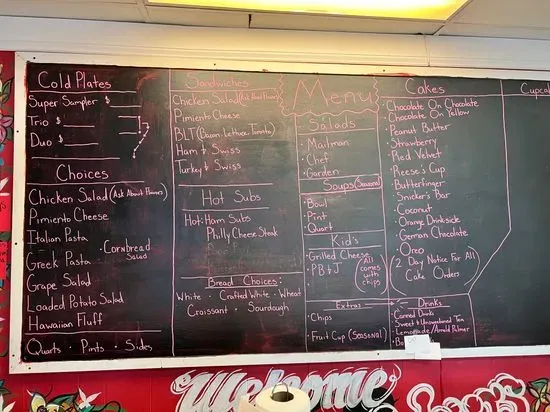 Menu
Cold Plates
Super Sampler $
Trio $
Duo $
Choices
Chicken Salad (Ask About Flavors)
Pimiento Cheese
Italian Pasta
• Cornbread Salad
Greek Pasta
Grape Salad
Loaded Potato Salad
Hawaiian Fluff
Quarts • Pints • Sides
Sandwiches
Chicken Salad (Ask About Flavors)
Pimiento Cheese
BLT (Bacon•Lettuce•Tomato)
Ham & Swiss
Turkey & Swiss
Hot Subs
Hot: Ham Subs
Philly Cheese Steak
Bread Choices:
White • Crafted White • Wheat
Croissant • Sourdough
Salads
• Mailman
• Chef
• Garden
Soups (Seasonal)
• Bowl
• Pint
• Quart
Kid's
• Grilled Cheese
• PB & J
(All comes with chips)
Extras
• Chips
• Fruit Cup (Seasonal)
Cakes
• Chocolate On Chocolate
• Chocolate On Yellow
• Peanut Butter
• Strawberry
• Red Velvet
• Reese's Cup
• Butterfinger
• Snicker's Bar
• Coconut
• Orange Dreamside
• German Chocolate
• Oreo
(2 Day Notice For All Cake Orders)
Drinks
• Canned Drinks
• Sweet & Unsweetened Tea
• Lemonade/Arnold Palmer
Welcome